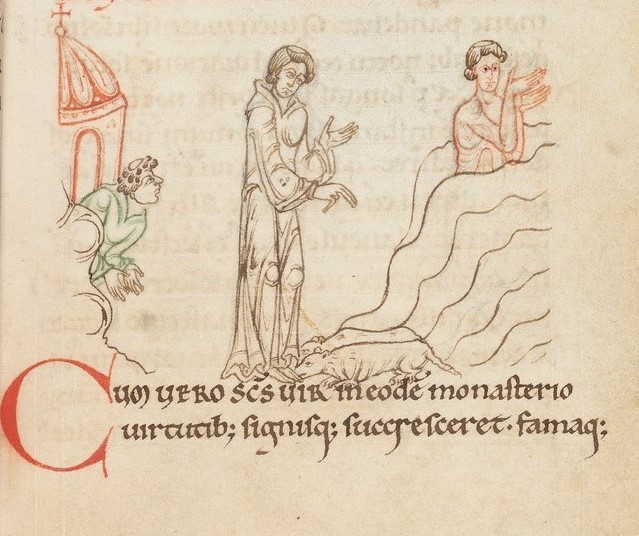 Cum vero scs vir in eode monasterio
virtutib; signisq; succresceret · famaq;